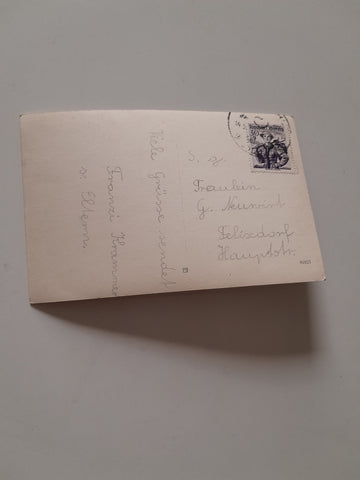 Viele Grüsse sendet
Franzi Krammer
u. Eltern.
S. g.
Fräulein
G.
Felixdorf
Hauptstr.